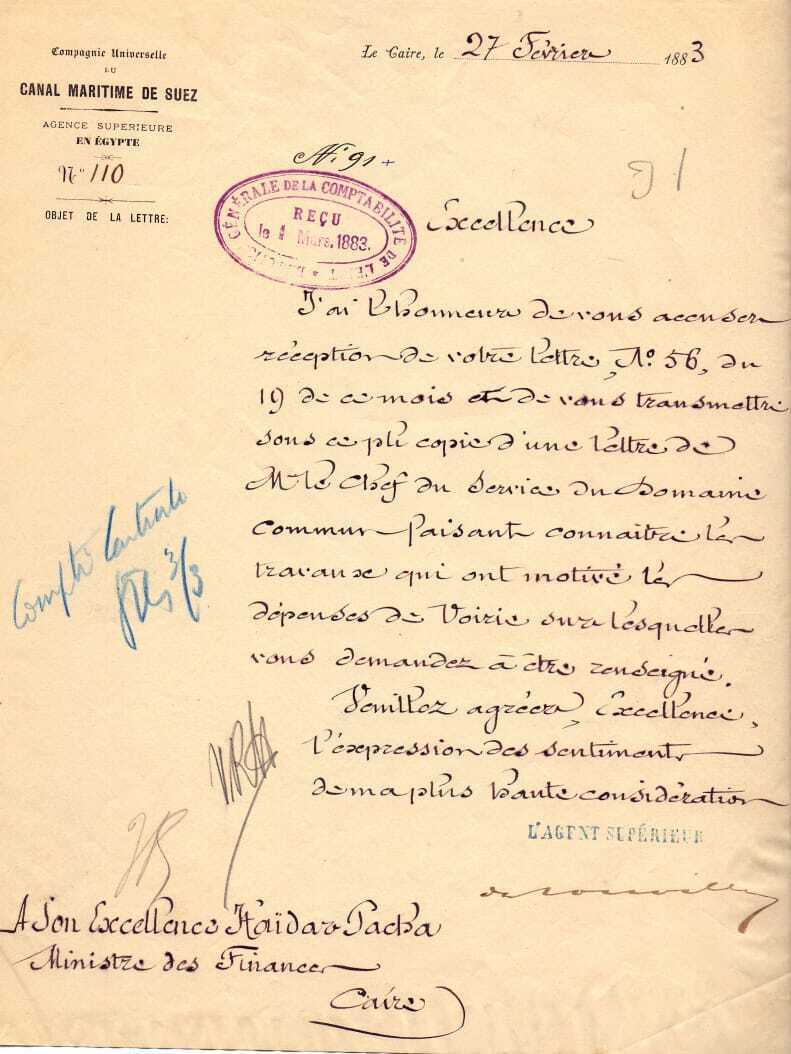 Compagnie Universelle
DU
CANAL MARITIME DE SUEZ
AGENCE SUPERIEURE
EN ÉGYPTE
N° 110
OBJET DE LA LETTRE:
Le Caire, le 27 Février 1883
N° 91
91
GÉNÉRALE DE LA COMPTABILITÉ DE L'ETAT
REÇU
le 1 Mars. 1883.
Excellence
J'ai l'honneur de vous accuser
réception de votre lettre, N° 56, du
19 de ce mois et de vous transmettre
sous ce pli copie d'une lettre de
Mr le Chef du Service du Domaine
commun faisant connaître les
travaux qui ont motivé les
dépenses de Voirie sur lesquelles
vous demandez à être renseigné.
Veuillez agréer, Excellence,
l'expression des sentiments
de ma plus haute considération
L'AGENT SUPÉRIEUR
3/3
A Son Excellence Haïdar Pacha
Ministre des Finances
Caire